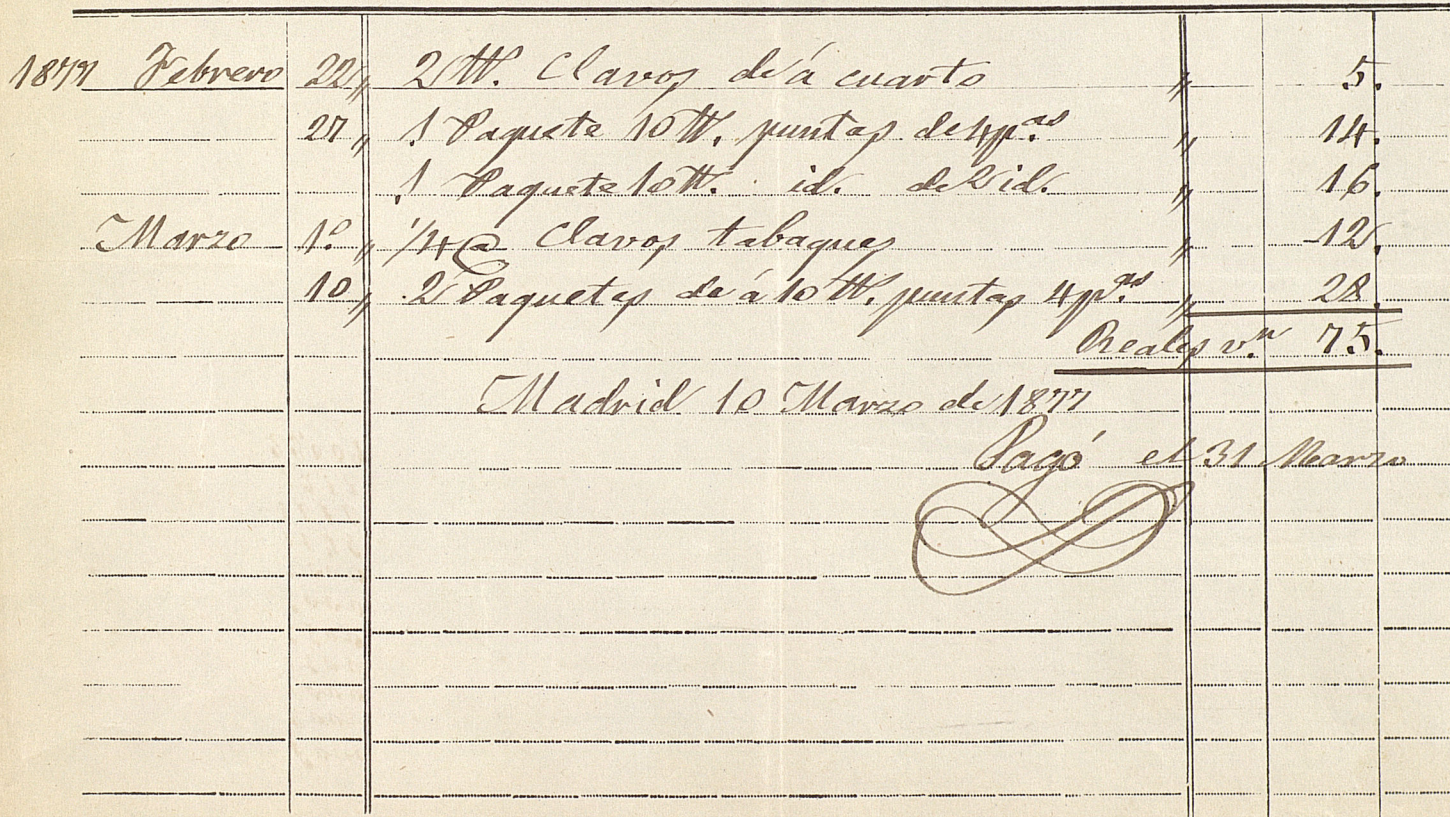 1877 Febrero 22 „ 2 ℔. Clavos de á cuarto „ 5.
27 „ 1 Paquete 10 ℔. puntas de 4 p.as „ 14.
1 Paquete 10 ℔. id. de 2 id. „ 16.
Marzo 1º „ 1/4 @ Clavos tabaques „ 12.
10 „ 2 Paquetes de á 10 ℔. puntas 4 p.as „ 28.
Reales v.n 75.
Madrid 10 Marzo de 1877
Pagó el 31 Marzo